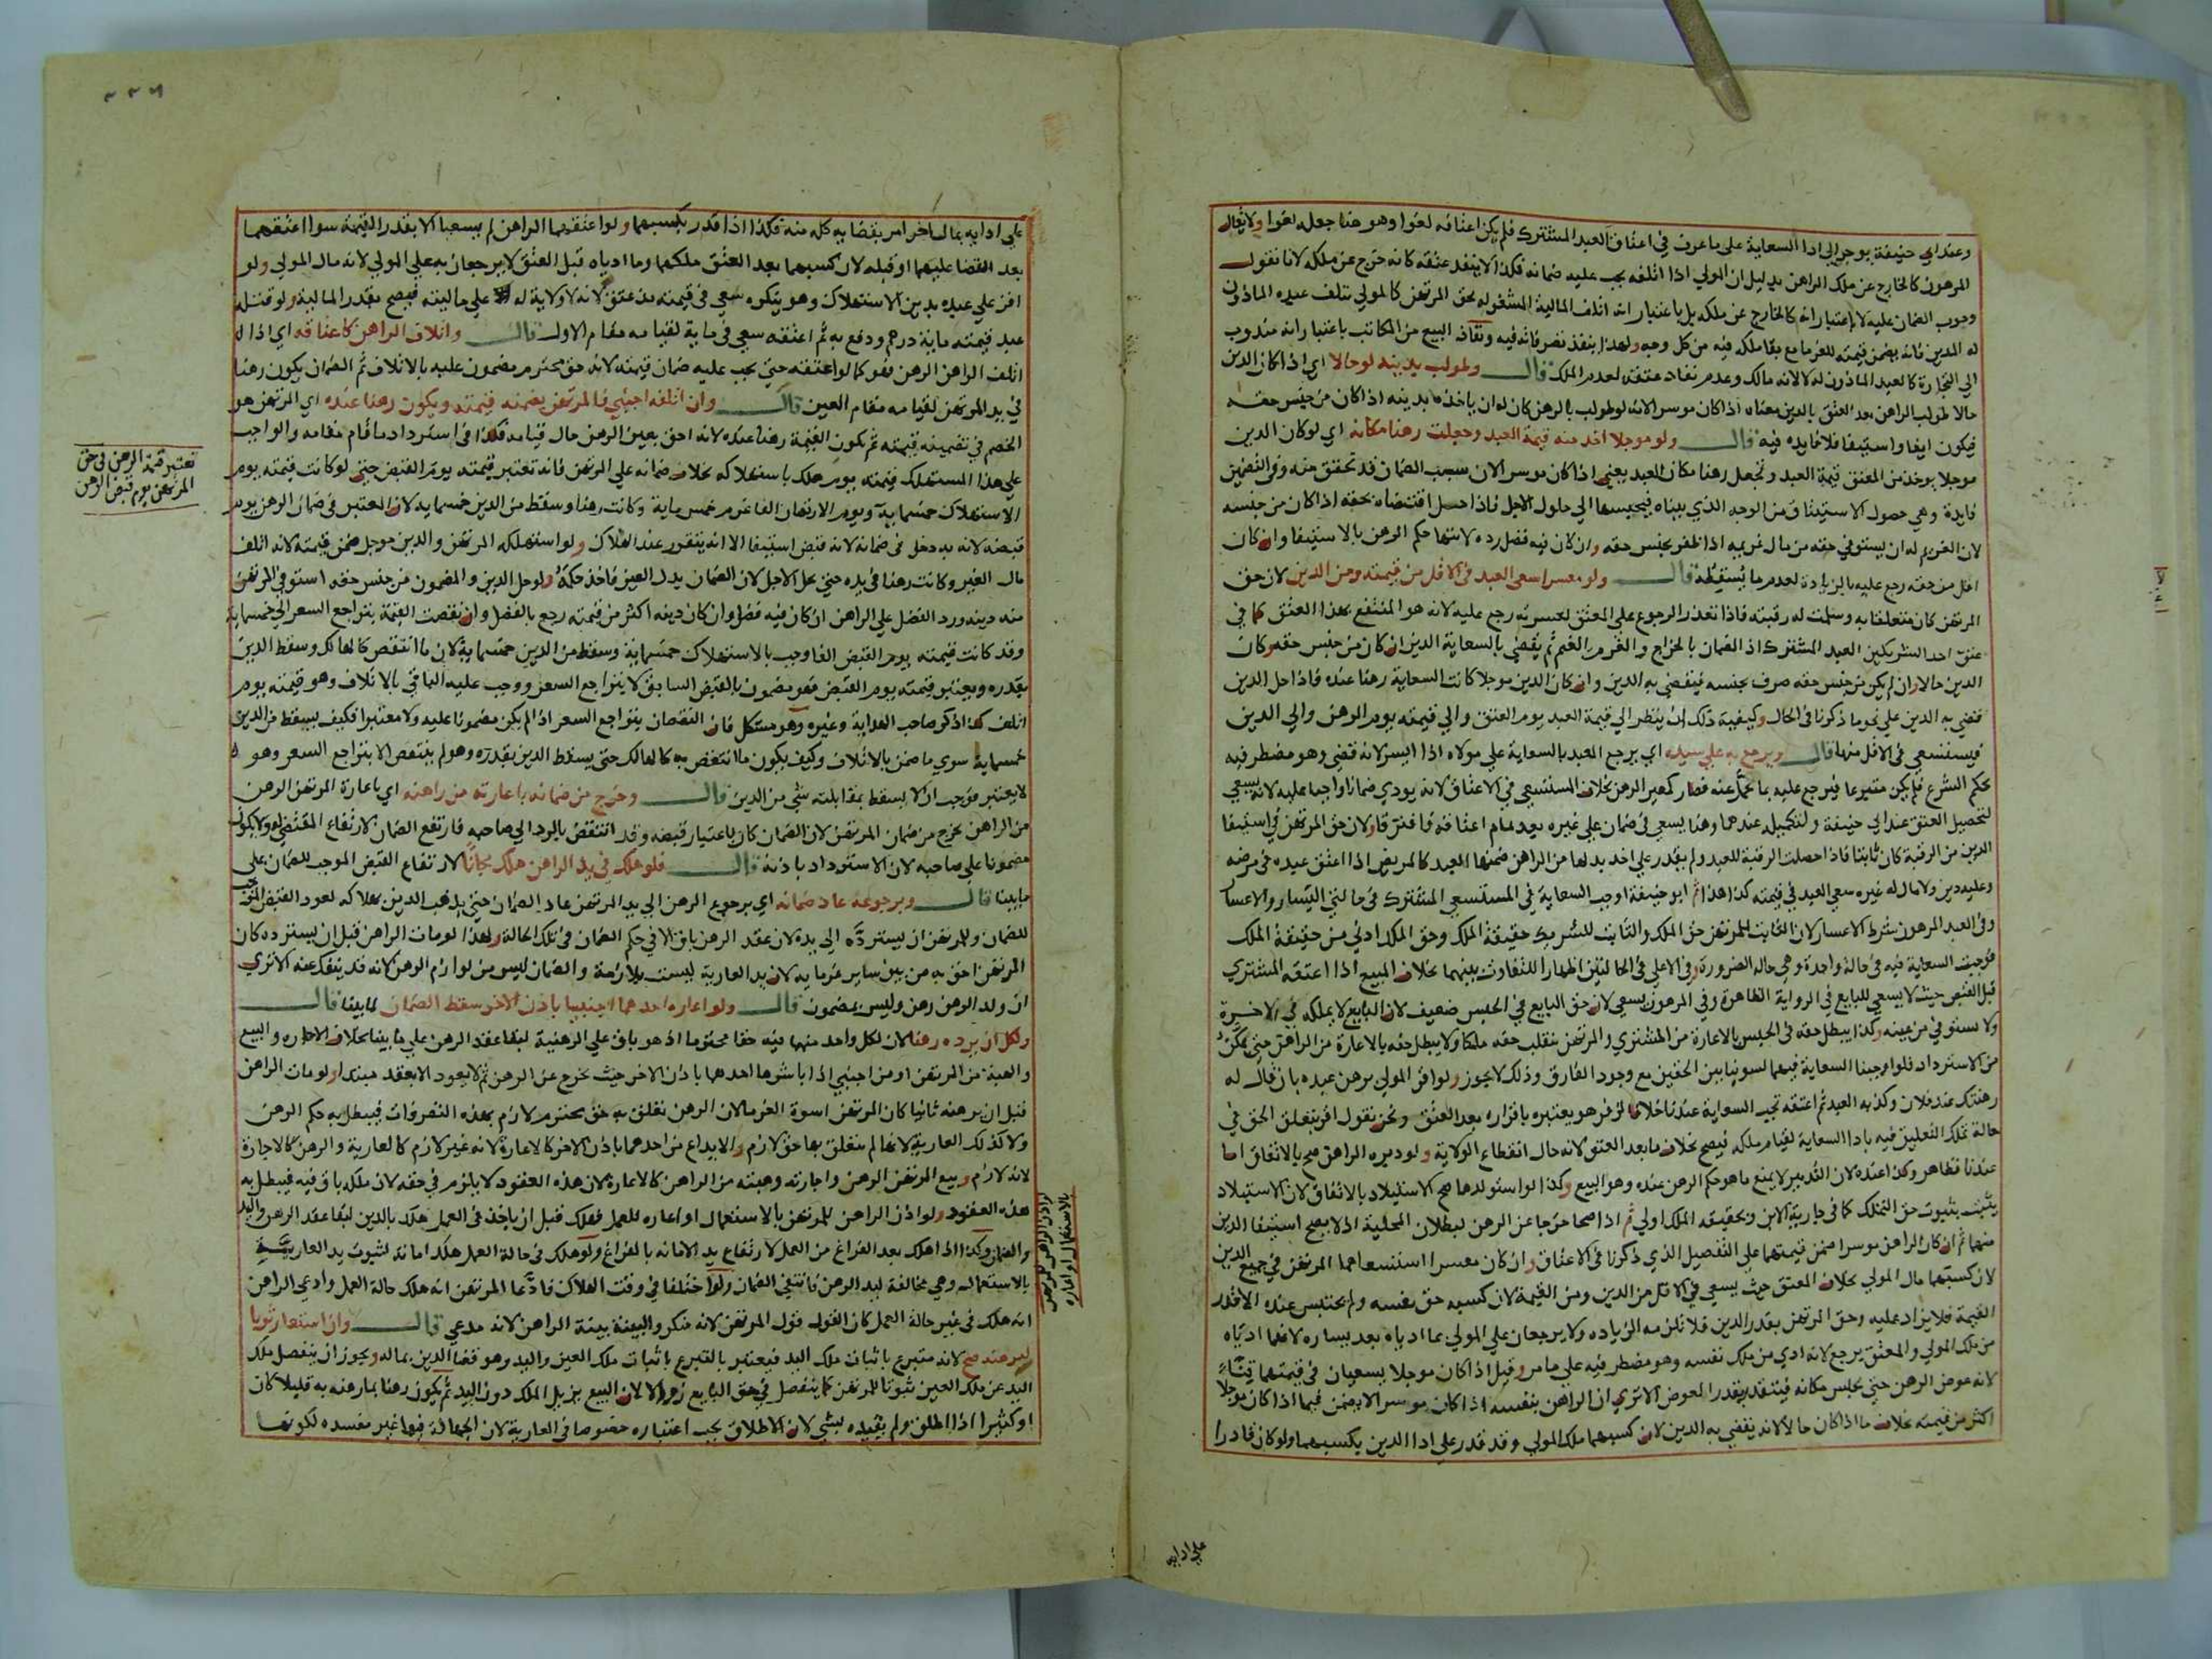 وعند ابي حنيفة يوجر الى ادا السعاية على ما عرف في اعتاق العبد المشترك فلم يكن اعتاقه لغوا وهو هنا جعله لغوا ولا يقال
المرهون كالخارج عن ملك الراهن بدليل ان المولي اذا اتلفه يجب عليه ضمانه فكذا لا ينفذ عتقه كانه خرج عن ملكه لانا نقول
وجوب الضمان عليه لا باعتبار انه كالخارج عن ملكه بل باعتبار انه اتلف المالية المشغوله بحق المرتهن كالمولي يتلف عبده الماذون
له المدين فانه يضمن قيمته للغرما مع بقا ملكه فيه من كل وجه ولهذا ينفذ تصرفاته فيه ونفاذ البيع من المكاتب باعتبار انه مندوب
الي التجارة كالعبد الماذون له لا لانه مالك وعدم نفاد عتقه لعدم الملك قال وطولب بدينه لو حالا اي اذا كان الدين
حالا طولب الراهن بعد العتق بالدين معناه اذا كان موسرا لانه لو طولب بالرهن كان له ان ياخذه بدينه اذا كان من جنس حقه
فيكون ايفا واستيفا فلا فايده فيه قال ولو موجلا اخذ منه قيمة العبد وجعلت رهنا مكانه اي لو كان الدين
موجلا يوخذ من المعتق قيمة العبد وتجعل رهنا مكان العبد يعني اذا كان موسرا لان سبب الضمان قد تحقق منه وفي التضمين
فايدة وهي حصول الاستيثاق من الوجه الذي بيناه فيحبسها الي حلول الاجل فاذا حل اقتضاه بحقه اذا كان من جنسه
لان الغريم له ان يستوفي حقه من مال غريمه اذا ظفر بجنس حقه وان كان فيه فضل رده لانتها حكم الرهن بالاستيفا وان كان
اقل من حقه رجع عليه بالزيادة لعدم ما يسقطه قال ولو معسرا سعى العبد في الاقل من قيمته ومن الدين لان حق
المرتهن كان متعلقا به وسلمت له رقبته فاذا تعذر الرجوع على المعتق لعسرته رجع عليه لانه هو المنتفع بهذا العتق كما في
عتق احد الشريكين العبد المشترك اذ الضمان بالخراج والغرم بالغنم ثم يقضي بالسعاية الدين ان كان من جنس حقه وكان
الدين حالا وان لم يكن من جنس حقه صرف بجنسه فيقضي به الدين وان كان الدين موجلا كانت السعاية رهنا عنده فاذا حل الدين
قضي به الدين على نحو ما ذكرنا في الحال وكيفية ذلك ان ينظر الي قيمة العبد يوم العتق والي قيمته يوم الرهن والي الدين
فيستسعي في الاقل منها قال ويرجع به على سيده اي يرجع العبد بالسعاية علي مولاه اذا ايسر لانه قضي وهو مضطر فيه
بحكم الشرع فلم يكن متبرعا فيرجع عليه بما تحمل عنه فصار كمعير الرهن بخلاف المستسعي في الاعتاق لانه يودي ضمانا واجبا عليه لانه يسعي
لتحصيل العتق عند ابي حنيفة ولتكميله عندهما وهنا يسعي في ضمان على غيره بعد تمام اعتاقه فافترقا ولان حق المرتهن في استيفا
الدين من الرقبة كان ثابتا فاذا حصلت الرقبة للعبد ولم يقدر على اخذ بدلها من الراهن ضمنها العبد كالمريض اذا اعتق عبده في مرضه
وعليه دين ولا مال له غيره سعى العبد في قيمته كذا هذا ثم ابو حنيفة اوجب السعاية في المستسعي المشترك في حالتي اليسار والاعسار
وفي العبد المرهون شرط الاعسار لان الثابت للمرتهن حق الملك والثابت للشريك حقيقة الملك وحق الملك ادني من حقيقة الملك
فوجبت السعاية فيه في حالة واحدة وهي حالة الضرورة وفي الاعلي في الحالتين اظهارا للتفاوت بينهما بخلاف المبيع اذا اعتقه المشتري
قبل القبض حيث لا يسعي للبايع في الرواية الظاهرة وفي المرهون يسعى لان حق البايع في الحبس ضعيف لان البايع لا يملكه في الاخرة
ولا يستوفي من عينه وكذا يبطل حقه في الحبس بالاعارة من المشتري والمرتهن ينقلب حقه ملكا ولا يبطل حقه بالاعارة من الراهن حتى يمكنه
من الاسترداد فلو اوجبنا السعاية فيهما لسوينا بين الحقين مع وجود الفارق وذلك لا يجوز ولو اقر المولي برهن عبده بان قال له
رهنتك عند فلان وكذبه العبد ثم اعتقه تجب السعاية عندنا خلافا لزفر هو يعتبره باقراره بعد العتق ونحن نقول اقر بتعلق الحق في
حالة يملك التعليق فيه بادا السعاية لقيام ملكه فيصح بخلاف ما بعد العتق لانه حال انقطاع الولاية ولو دبره الراهن صح بالاتفاق اما
عندنا فظاهر وكذا عنده لان التدبير لا يمنع ما هو حكم الرهن عنده وهو البيع وكذا لو استولدها صح الاستيلاد بالاتفاق لان الاستيلاد
يثبت بثبوت حق التملك كما في جارية الابن وبحقيقه الملك اولي ثم اذا صحا خرجا عن الرهن لبطلان المحلية اذ لا يصح استيفا الدين
منهما ثم ان كان الراهن موسرا ضمن قيمتهما على التفصيل الذي ذكرنا في الاعتاق وان كان معسرا استسعاهما المرتهن في جميع الدين
لان كسبهما مال المولي بخلاف المعتق حيث يسعي في الاقل من الدين ومن القيمة لان كسبه حق نفسه ولم يحتبس عنده الا قدر
القيمة فلا يزاد عليه وحق المرتهن بقدر الدين فلا تلزمه الزياده ولا يرجعان على المولي بما ادياه بعد يساره لانهما ادياه
من ملك المولي والمعتق يرجع لانه ادي من ملك نفسه وهو مضطر فيه على ما مر وقيل اذا كان موجلا يسعيان في قيمتهما قنا
لانه عوض الرهن حتى يحبس مكانه فيتقدر بقدر المعوض الا تري ان الراهن بنفسه اذا كان موسرا لا يضمن فيما اذا كان موجلا
اكثر من قيمته بخلاف ما اذا كان حالا لانه يقضي به الدين لان كسبهما ملك المولي وقد قدر على ادا الدين بكسبهما ولو كان قادرا
علي ادايه
٣٣٦
علي ادايه بمال اخر امر بقضايه كله منه فكذا اذا قدر بكسبهما ولو اعتقهما الراهن لم يسعيا الا بقدر القيمة سوا اعتقهما
بعد القضا عليهما او قبله لان كسبهما بعد العتق ملكهما وما ادياه قبل العتق لا يرجعان به على المولي لانه مال المولي ولو
اقر علي عبده بدين الاستهلاك وهو ينكره سعي في قيمته مذ عتق لانه لا ولاية له علي ماليته فيصح بقدر المالية ولو قتله
عبد قيمته ماية درهم ودفع به ثم اعتقه سعي في ماية لقيامه مقام الاول قال واتلاف الراهن كاعتاقه اي اذا
اتلف الراهن الرهن فهو كما لو اعتقه حتي يجب عليه ضمان قيمته لانه حق محترم مضمون عليه بالاتلاف ثم الضمان يكون رهنا
في يد المرتهن لقيامه مقام العين قال وان اتلفه اجنبي فالمرتهن يضمنه قيمته ويكون رهنا عنده اي المرتهن هو
الخصم في تضمينه قيمته ثم تكون القيمة رهنا عنده لانه احق بعين الرهن حال قيامه فكذا في استرداد ما قام مقامه والواجب
علي هذا المستهلك قيمته يوم هلك باستهلاكه بخلاف ضمانه علي المرتهن فانه تعتبر قيمته يوم القبض حتي لو كانت قيمته يوم
الاستهلاك خمسماية ويوم الارتهان الفا غرم خمس ماية وكانت رهنا وسقط من الدين خمسمايه لان المعتبر في ضمان الرهن يوم
قبضه لانه به دخل في ضمانه لانه قبض استيفا الا انه يتقرر عند الهلاك ولو استهلكه المرتهن والدين موجل ضمن قيمته لانه اتلف
مال الغير وكانت رهنا في يده حتي يحل الاجل لان الضمان بدل العين فاخذ حكمه ولو حل الدين والمضمون من جنس حقه استوفي المرتهن
منه دينه ورد الفضل علي الراهن ان كان فيه فضل وان كان دينه اكثر من قيمته رجع بالفضل وان نقصت القيمة بتراجع السعر الي خمسماية
وقد كانت قيمته يوم القبض الفا وجب بالاستهلاك خمسماية وسقط من الدين خمسماية لان ما انتقص كالهالك وسقط الدين
بقدره ويعتبر قيمته يوم القبض فهو مضمون بالقبض السابق لا بتراجع السعر ووجب عليه الباقي بالاتلاف وهو قيمته يوم
اتلف كذا ذكر صاحب الهداية وغيره وهو مشكل فان النقصان بتراجع السعر اذا لم يكن مضمونا عليه ولا معتبرا فكيف يسقط من الدين
خمسماية سوي ما ضمن بالاتلاف وكيف يكون ما انتقص به كالهالك حتى يسقط الدين بقدره وهو لم ينتقص الا بتراجع السعر وهو
لا يعتبر فوجب ان لا يسقط بمقابلته شي من الدين قال وخرج من ضمانه باعارته من راهنه اي باعارة المرتهن الرهن
من الراهن يخرج من ضمان المرتهن لان الضمان كان باعتبار قبضه وقد انتقض بالرد الي صاحبه فارتفع الضمان لارتفاع المقتضي له ولا يكون
مضمونا على صاحبه لان الاسترداد باذنه قال فلو هلك في يد الراهن هلك مجانا لارتفاع القبض الموجب للضمان على
ما بينا قال وبرجوعه عاد ضمانه اي برجوع الرهن الي يد المرتهن عاد الضمان حتي يذهب الدين بهلاكه لعود القبض الموجب
للضمان وللمرتهن ان يسترده الى يده لان عقد الرهن باق الا في حكم الضمان في تلك الحالة ولهذا لو مات الراهن قبل ان يسترده كان
المرتهن احق به من بين ساير غرمايه لان يد العارية ليست بلازمة والضمان ليس من لوازم الرهن لانه قد ينفك عنه الا تري
ان ولد الرهن رهن وليس بمضمون قال ولو اعاره احدهما اجنبيا باذن الاخر سقط الضمان لما بينا قال
ولكل ان يرده رهنا لان لكل واحد منهما فيه حقا محترما اذ هو باق علي الرهنية لبقا عقد الرهن علي ما بينا بخلاف الاجاره والبيع
والهبة من المرتهن او من اجنبي اذا باشرها احدهما باذن الاخر حيث يخرج عن الرهن ثم لا يعود الا بعقد مبتدا ولو مات الراهن
قبل ان يرهنه ثانيا كان المرتهن اسوة الغرما لان الرهن تعلق به حق محترم لازم بهذه التصرفات فيبطل به حكم الرهن
ولا كذلك العارية لانها لم يتعلق بها حق لازم والايداع من احدهما باذن الاخر كالاعارة لانه غير لازم كالعارية والرهن كالاجارة
لانه لازم وبيع المرتهن الرهن واجارته وهبته من الراهن كالاعارة لان هذه العقود لا يلزم في حقه لان ملكه باق فيه فيبطل به
هذه العقود ولو اذن الراهن للمرتهن بالاستعمال او اعاره للعمل فهلك قبل ان ياخذ في العمل هلك بالدين لبقا عقد الرهن واليد
والضمان وكذا اذا هلك بعد الفراغ من العمل لارتفاع يد الامانه بالفراغ ولو هلك في حالة العمل هلك امانة لثبوت يد العارية
بالاستعمال وهي مخالفة ليد الرهن فانتفي الضمان ولو اختلفا في وقت الهلاك فادعا المرتهن انه هلك حالة العمل وادعي الراهن
انه هلك في غير حالة العمل كان القول قول المرتهن لانه منكر والبينة بينة الراهن لانه مدعي قال وان استعار ثوبا
ليرهنه صح لانه متبرع باثبات ملك اليد فيعتبر بالتبرع باثبات ملك العين واليد وهو قضا الدين بماله ويجوز ان ينفصل ملك
اليد عن ملك العين ثبوتا للمرتهن كما ينفصل في حق البايع زوالا لان البيع يزيل الملك دون اليد ثم يكون رهنا بما رهنه به قليلا كان
او كثيرا اذا اطلق ولم يقيده بشي لان الاطلاق يجب اعتباره خصوصا في العارية لان الجهالة فيها غير مفسده لكونها
تعتبر قيمة الرهن في حق
المرتهن يوم قبض الرهن
لو اذن الراهن للمرتهن
بالاستعمال او اعاره